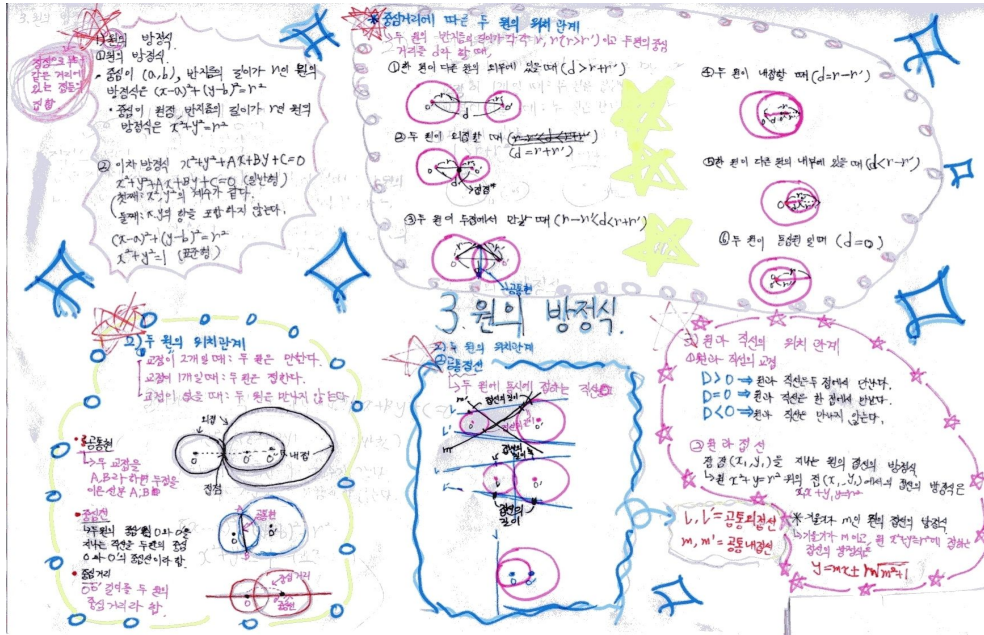 3. 원의 방정식.
1) 원의 방정식
① 원의 방정식.
• 중심이 (a,b), 반지름의 길이가 r인 원의
방정식은 (x-a)²+(y-b)²=r²
• 중심이 원점, 반지름의 길이가 r인 원의
방정식은 x²+y²=r²
② 이차 방정식 x²+y²+Ax+By+C=0
x²+y²+Ax+By+C=0 (일반형)
첫째: x²,y²의 계수가 같다.
둘째: xy의 항을 포함하지 않는다.
(x-a)²+(y-b)²=r²
x²+y²=1 (표준형)
같은 거리에
있는 점들의
집합.
* 중심거리에 따른 두 원의 위치 관계
두 원의 반지름의 길이가 각각 r, r'(r>r')이고 두원의 중심
거리를 d라 할 때,
① 한 원이 다른 원의 외부에 있을 때 (d>r+r')
② 두 원이 외접할 때
(d=r+r')
접점
③ 두 원이 두점에서 만날 때 (r-r'<d<r+r')
공통현
④ 두 원이 내접할 때 (d=r-r')
⑤ 한 원이 다른 원의 내부에 있을 때 (d<r-r')
⑥ 두 원이 동심원 일때 (d=0)
2) 두 원의 위치관계
교점이 2개일 때: 두 원은 만난다.
교점이 1개일 때: 두 원은 접한다.
교점이 없을 때: 두 원은 만나지 않는다
• 공통현
두 교점을
A,B라하면 두점을
이은선분 A,B
외접
내접
접점
• 중심선
두원의 중심인 O와 O'을
지나는 직선을 두원의 중심
O와 O'의 중심선이라 함.
공통현
• 중심거리
OO' 길이를 두 원의
중심거리라 함
중심거리
중심선
2) 두 원의 위치관계
① 공통접선
두 원에 동시에 접하는 직선
접선의 길이
접선의
길이
l, l' = 공통외접선
m, m' = 공통내접선
원과 직선의 위치 관계
① 원과 직선의 교점
D>0 ⇒ 원과 직선은 두 점에서 만난다.
D=0 ⇒ 원과 직선은 한 점에서 만난다.
D<0 ⇒ 원과 직선은 만나지 않는다.
② 원과 접선
접점 (x₁,y₁)을 지나는 원의 접선의 방정식
원 x²+y²=r² 위의 점 (x₁,y₁)에서의 접선의 방정식은
x₁x+y₁y=r²
* 기울기가 m인 원의 접선의 방정식
기울기가 m이고, 원 x²+y²=r²에 접하는
접선의 방정식은
y=mx±r√m²+1